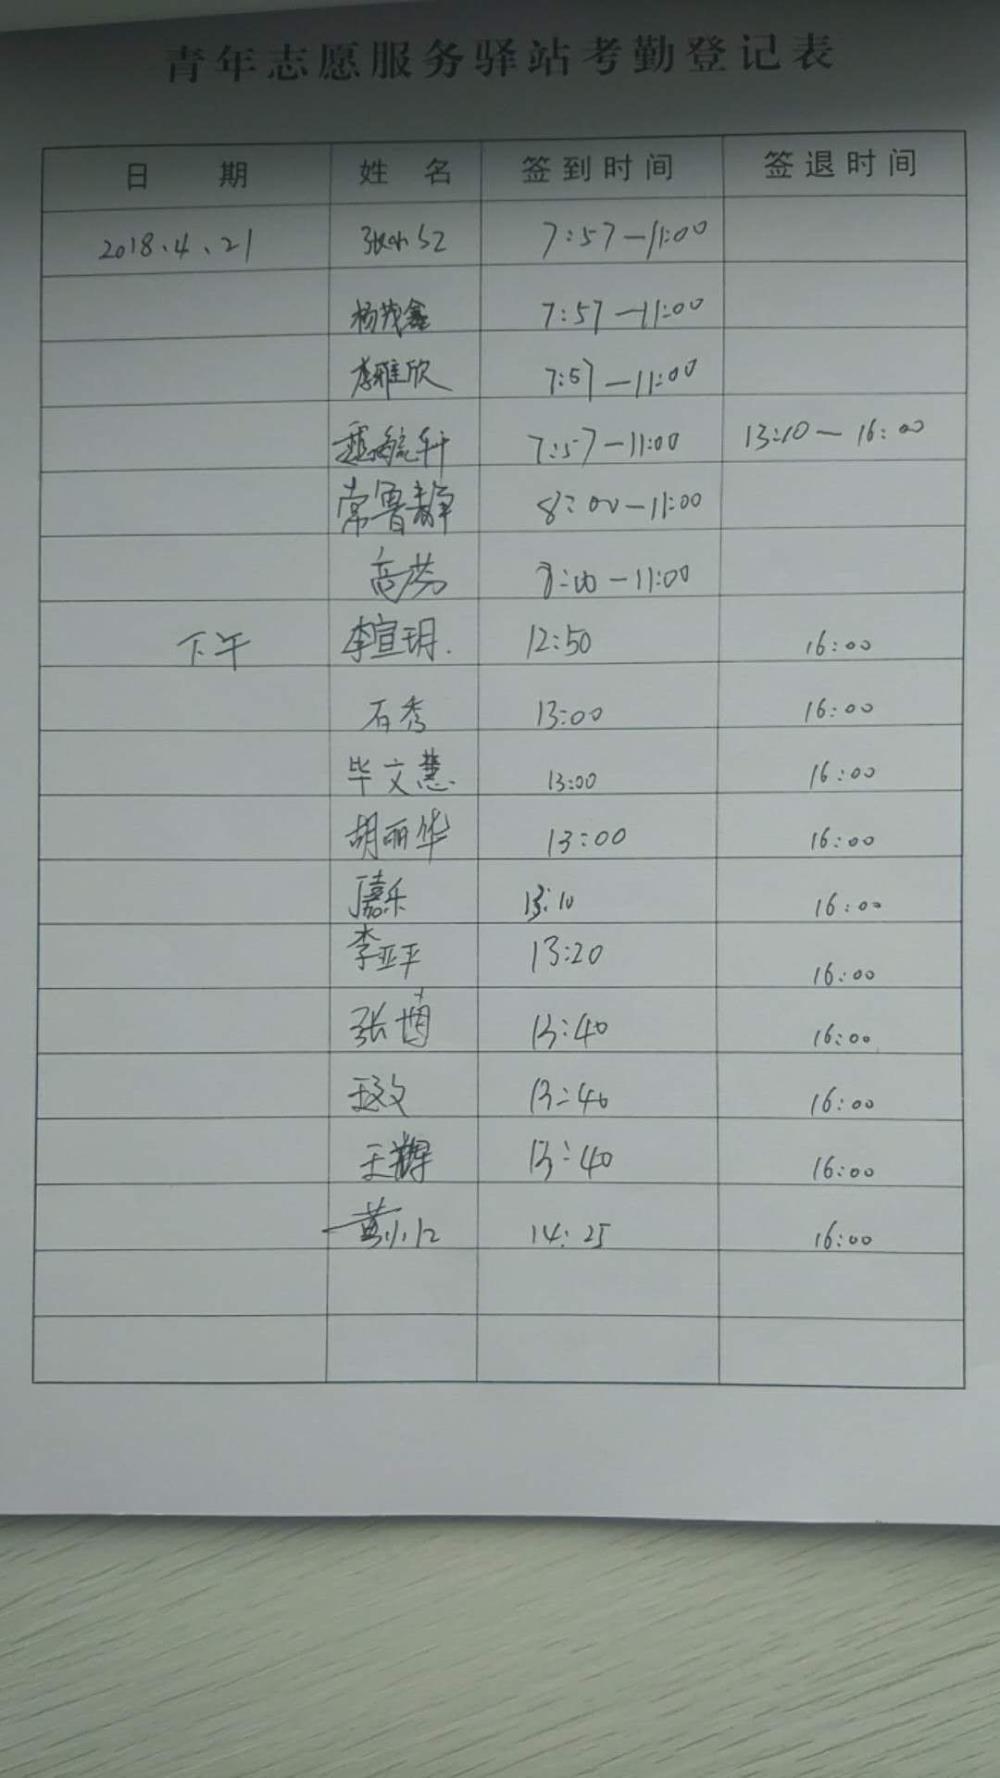 青年志愿服务驿站考勤登记表
日 期 姓 名 签到时间 签退时间
2018.4.21 张小红 7:57—11:00
杨茂鑫 7:57—11:00
李雅欣 7:57—11:00
赵毓轩 7:57—11:00 13:10—16:00
常鲁静 8:00—11:00
高芳 8:00—11:00
下午 李宣玥. 12:50 16:00
石秀 13:00 16:00
毕文慧 13:00 16:00
胡丽华 13:00 16:00
嘉乐 13:10 16:00
李亚平 13:20 16:00
张博 13:40 16:00
文 13:40 16:00
王辉 13:40 16:00
黄小 14:25 16:00